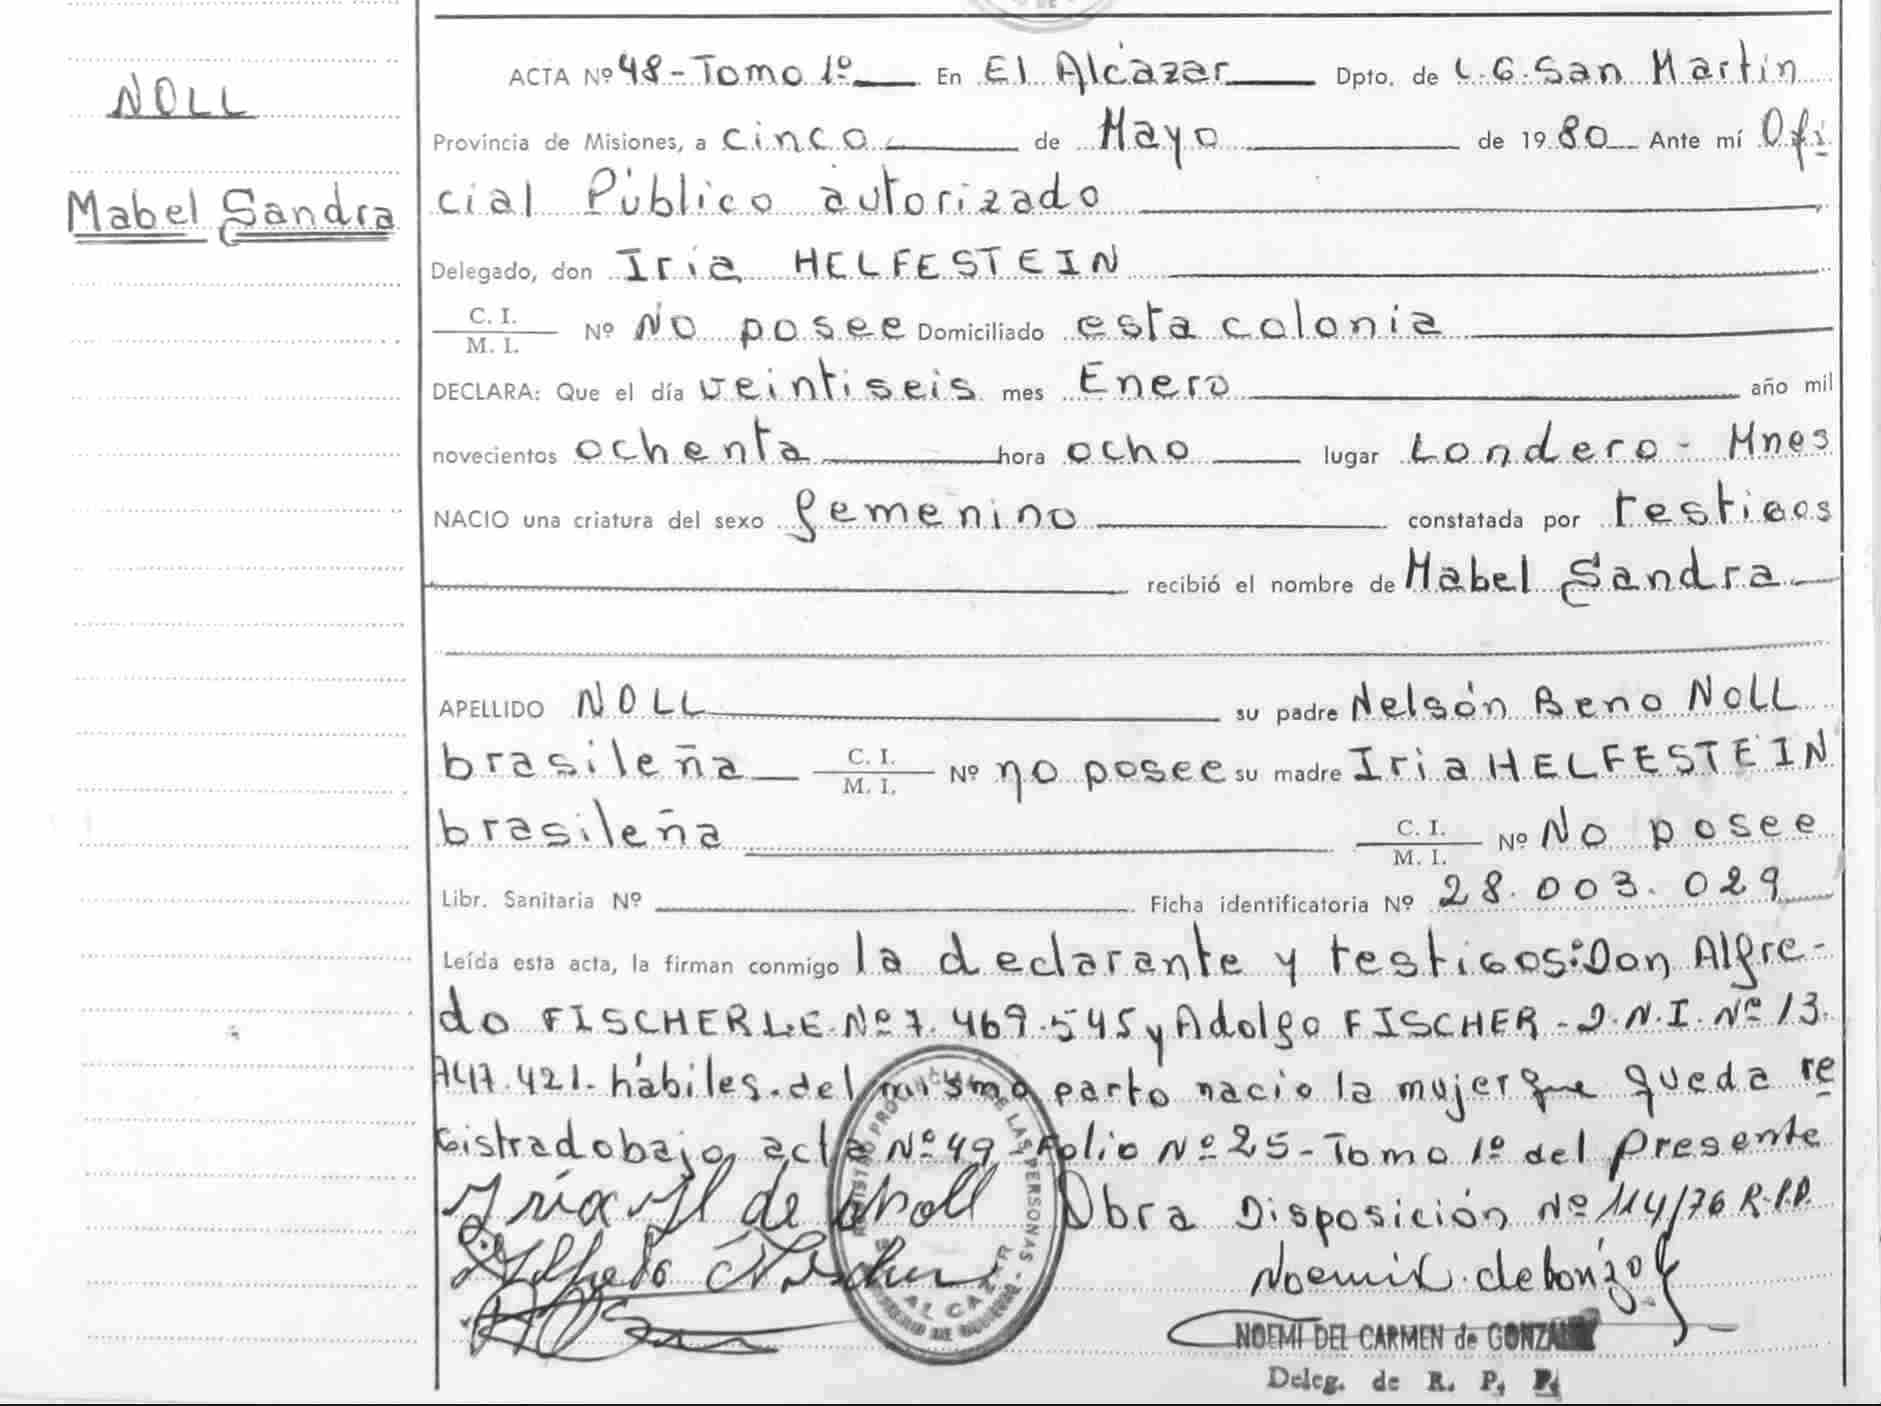 NOLL
Mabel Sandra
ACTA Nº 48 - Tomo 1º En El Alcázar Dpto. de L.G. San Martín
Provincia de Misiones, a cinco de Mayo de 1980 Ante mí Ofi
cial Público autorizado
Delegado, don Iria HELFESTEIN
C. I.
M. I. Nº No posee Domiciliado esta colonia
DECLARA: Que el día veintiseis mes Enero año mil
novecientos ochenta hora ocho lugar Londero - Mnes
NACIO una criatura del sexo femenino constatada por testigos
recibió el nombre de Mabel Sandra
APELLIDO NOLL su padre Nelsón Beno NOLL
brasileña C. I.
M. I. Nº no posee su madre Iria HELFESTEIN
brasileña C. I.
M. I. Nº No posee
Libr. Sanitaria Nº Ficha identificatoria Nº 28.003.029
Leída esta acta, la firman conmigo la declarante y testigos: Don Alfre-
do FISCHER L.E. Nº 7.469.545 y Adolfo FISCHER - D.N.I. Nº 13.
747.421. hábiles. del mismo parto nacio la mujer que queda re
gistrado bajo acta Nº 49 Folio Nº 25 - Tomo 1º del presente
Iria H de Noll Obra Disposición Nº 114/76 R.P.P.
Alfredo Fischer Noemi C. de Gonzal
REGISTRO PROVINCIAL DE LAS PERSONAS
ALCAZAR
MINISTERIO DE GOBIERNO
NOEMI DEL CARMEN de GONZALEZ
Deleg. de R. P. P.